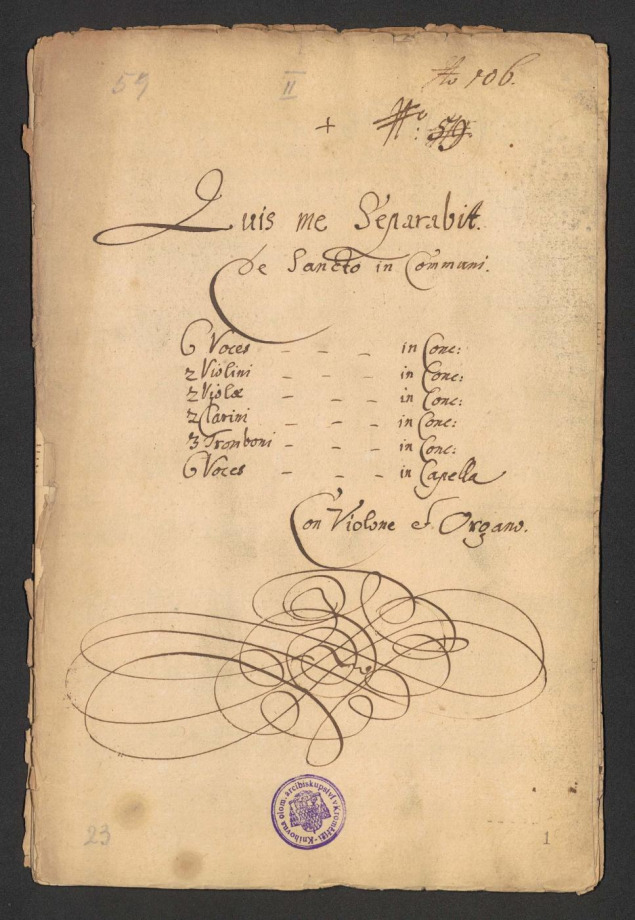 57 II No 106.
+ No: 59.
Quis me Separabit.
De Sancto in Communi.
6 Voces – – – in Conc:
2 Violini – – – in Conc:
2 Violæ – – – in Conc:
2 Clarini – – – in Conc:
3 Tromboni – – – in Conc:
6 Voces – – – in Capella
Con Violone et Organo.
Knihovna olom. arcibiskupství v Kroměříži
23 1